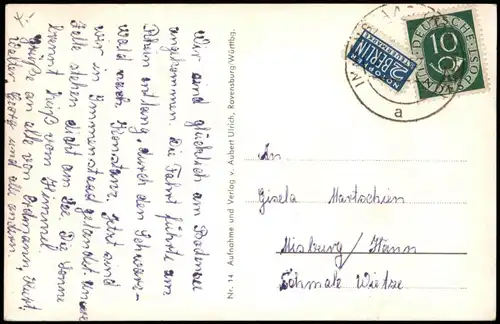 Wir sind glücklich am Bodensee
angekommen. Die Fahrt führte am
Rhein entlang, durch den Schwarz-
wald nach Konstanz. Jetzt sind
wir in Immenstaad gelandet. Unsere
Zelte stehen dicht am See. Die Sonne
brennt heiß vom Himmel.
Grüße an alle von Erdmann, Kurt,
Walter und alle andern.
Nr. 14 Aufnahme und Verlag v. Aubert Ulrich, Ravensburg/Württbg.
NOTOPFER
2 BERLIN
STEUERMARKE
DEUTSCHE BUNDESPOST
10
IM
a
An
Gisela Martschien
Misburg/Hann
Schmale Wietze